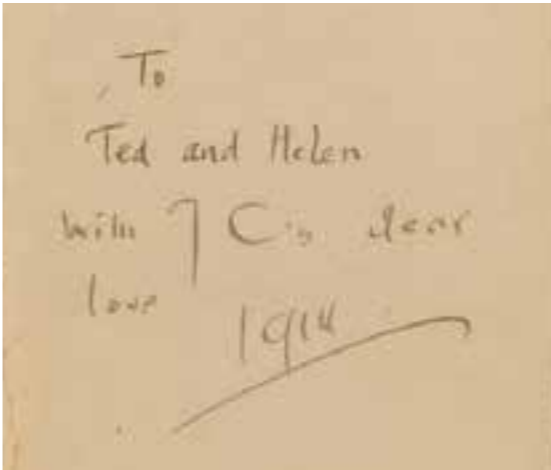 To
Ted and Helen
with J C's dear
love
1914